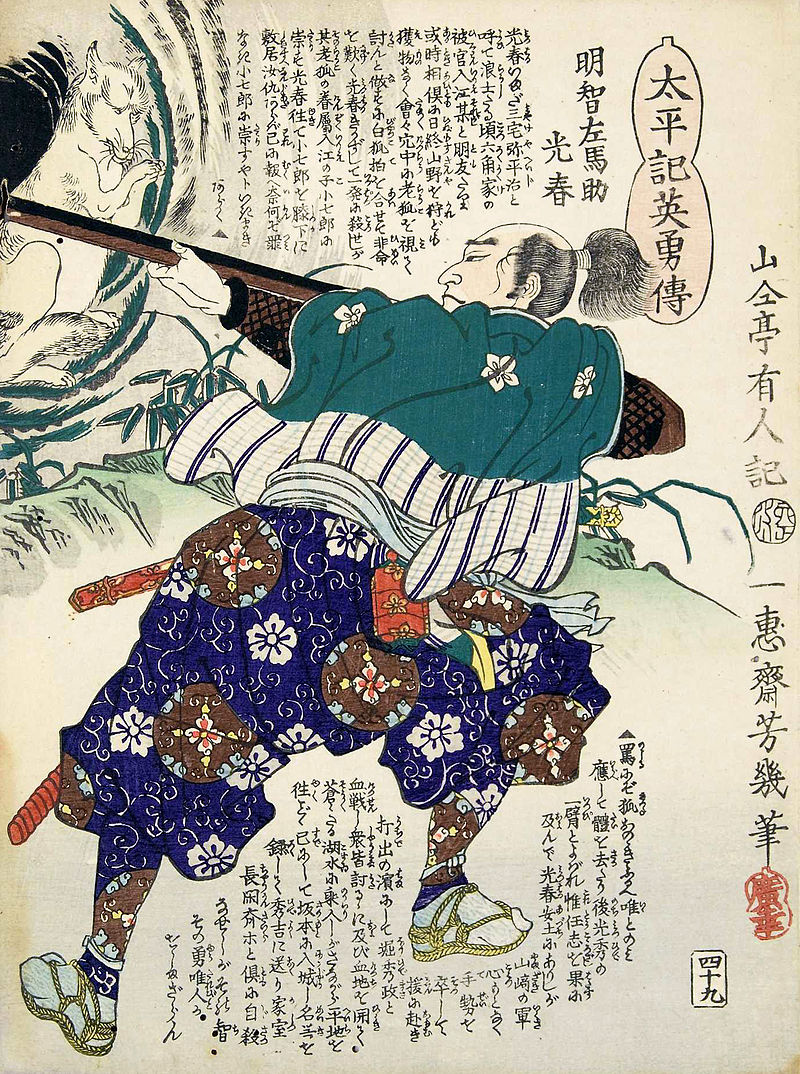 太平記英勇傳
明智左馬助
光春
山々亭有人記
光春いまだ三宅弥平治と
呼で浪士たる頃六角家の
被官入江某と朋友たり
或時相倶に日終山野を狩ども
獲物なく會々穴中に老狐を視て
討んと做すに白狐拍
を歎く光春きかずして一発に殺せしが
其老狐の眷属入江の子小七郎に
崇を光春往て小七郎を膝下に
敷居汝仇あらバ己に報へ奈何ぞ罪
なき小七郎に崇すやトいきまき
▲
▲
罵れバ狐
應じて體を去たり後光秀の
一臂とよばれ惟任志を果に
及んで光春安土にありしが
山崎の軍
心もとなく
手勢を
卒して
援に赴き
打出の濱にて堀秀政と
血戦し衆皆討るに及び血地を開て
蒼々たる湖水に乗入しさながら平地を
徃如く已にして坂本に入城し名器を
録して秀吉に送り家室
長閑斉ホと倶に自殺
なせしがその智
その勇唯人
一惠齋芳幾筆
四十九